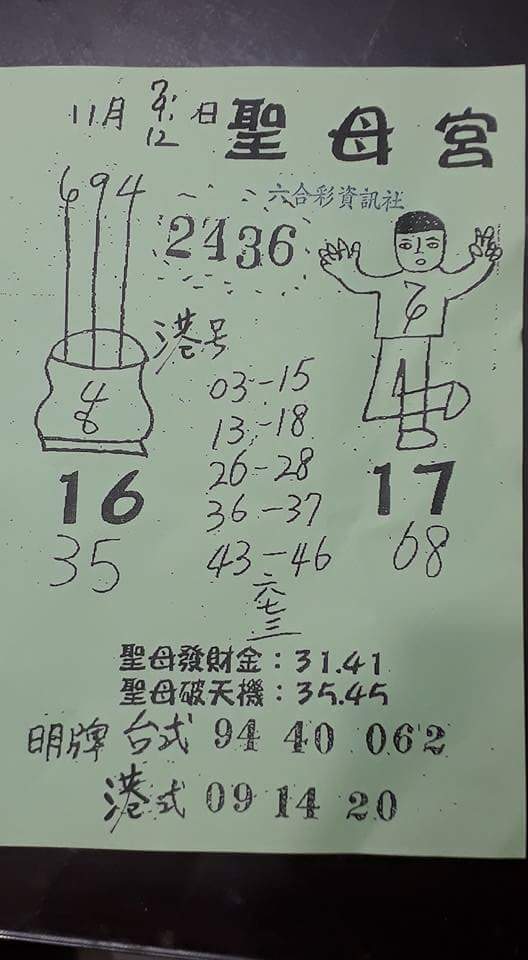 11月 日 聖母宮
12
694
六合彩資訊社
2436
港号
03-15
13-18
26-28
36-37
43-46
六七三
4
8
16
35
17
68
聖母發財金：31.41
聖母破天機：35.45
明牌 台式 94 40 062
港式 09 14 20